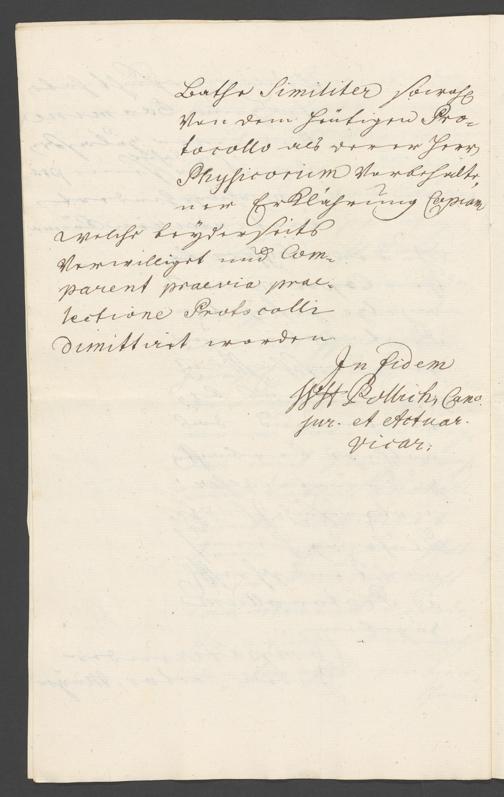 Bathe Similiter sowohl
Von dem heütigen Pro-
tocollo als derer Herrn
Physicorum Vorbehalte-
ner Erklährung Copiam
welche beÿderseits
Verwilliget und Com-
parent praevia prae-
lectione Protocolli
Dimittirt worden
In fidem
Bollich, Cano.
jur. et Actuar.
vicar: